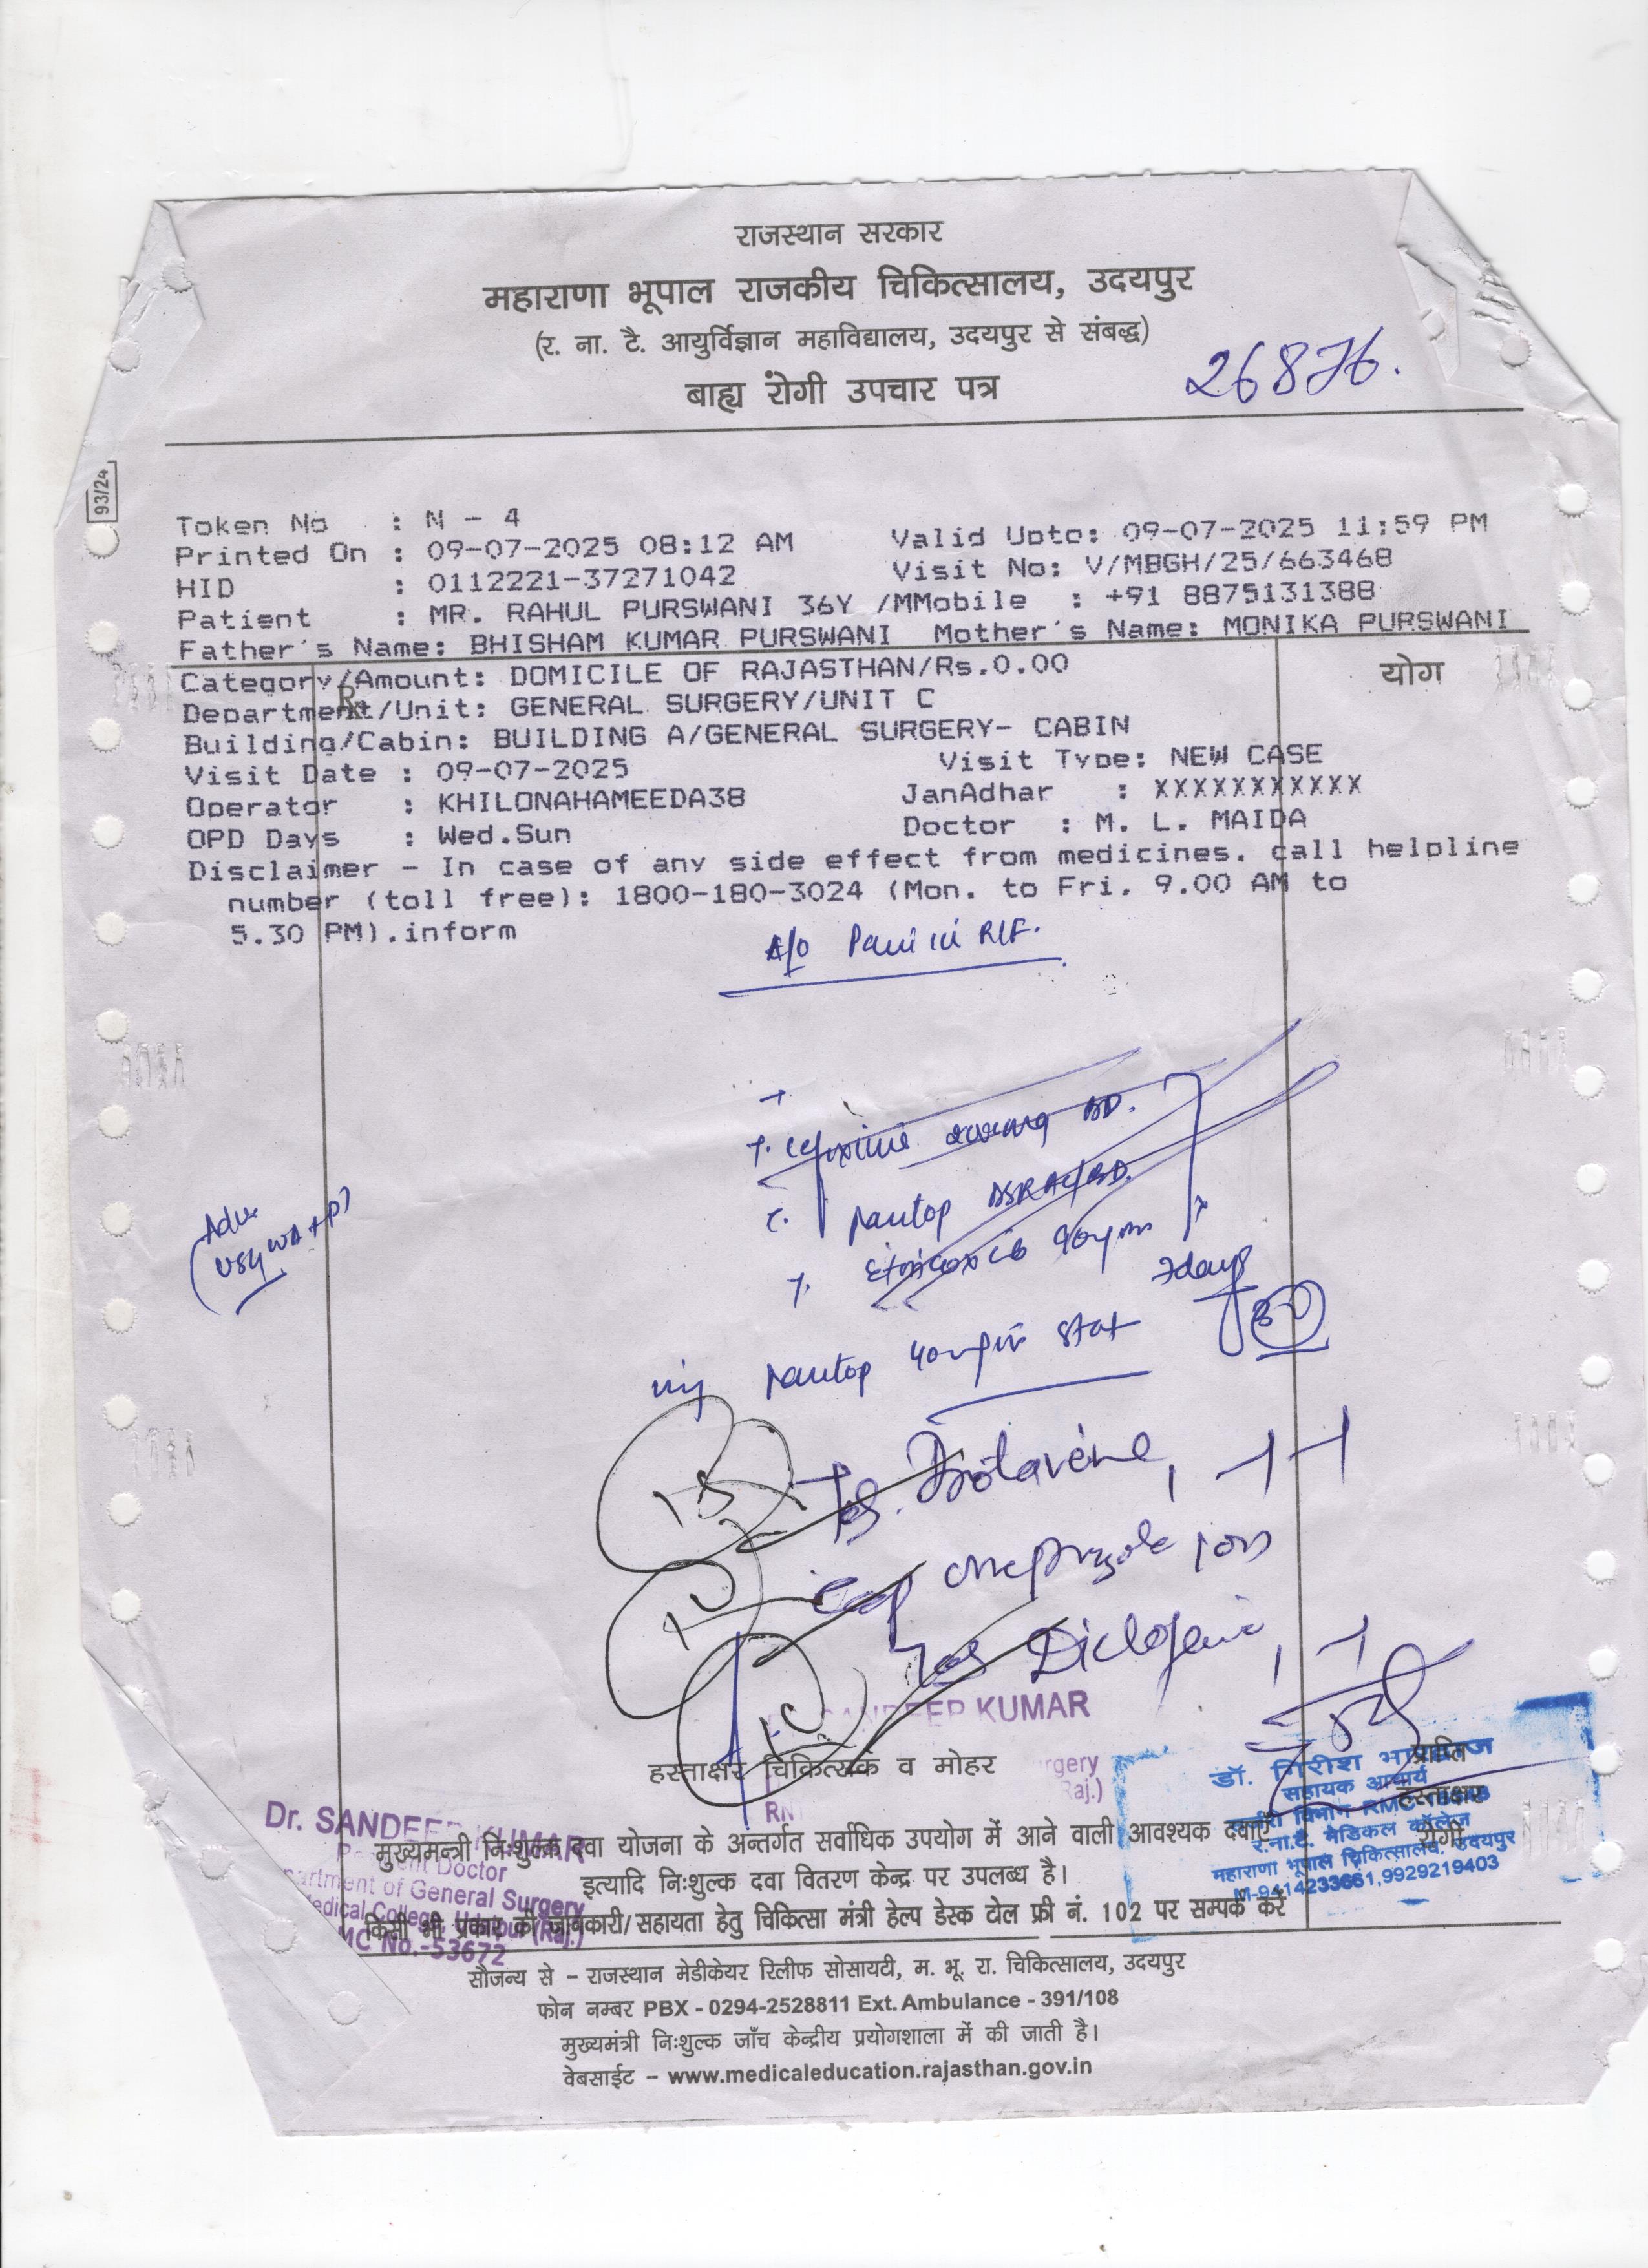 राजस्थान सरकार
महाराणा भूपाल राजकीय चिकित्सालय, उदयपुर
(र. ना. टै. आयुर्विज्ञान महाविद्यालय, उदयपुर से संबद्ध)
बाह्य रोगी उपचार पत्र
26876.
93/24
Token No : N - 4
Printed On : 09-07-2025 08:12 AM Valid Upto: 09-07-2025 11:59 PM
HID : 0112221-37271042 Visit No: V/MBGH/25/663468
Patient : MR. RAHUL PURSWANI 36Y /MMobile : +91 8875131388
Father's Name: BHISHAM KUMAR PURSWANI Mother's Name: MONIKA PURSWANI
Category/Amount: DOMICILE OF RAJASTHAN/Rs.0.00 योग
Department/Unit: GENERAL SURGERY/UNIT C
Building/Cabin: BUILDING A/GENERAL SURGERY- CABIN
Visit Date : 09-07-2025 Visit Type: NEW CASE
Operator : KHILONAHAMEEDA38 JanAdhar : XXXXXXXXXXX
OPD Days : Wed.Sun Doctor : M. L. MAIDA
Disclaimer - In case of any side effect from medicines. call helpline
number (toll free): 1800-180-3024 (Mon. to Fri. 9.00 AM to
5.30 PM).inform
Pain in RIF.
T. Cefixime BD.
Adv.
USG WA + P
Pantop DSR BD
T. Etoricoxib 90mg
7days
inj Pantop 40mg iv stat
Tab. Drotavérine, 1-1-1
Cap omeprazole 1 OD
Tab Diclofenac 1-1
SANDEEP KUMAR
हस्ताक्षर चिकित्सक व मोहर
प्राप्ति
हस्ताक्षर
रोगी
डॉ. गिरीश
सहायक आचार्य
र.ना.टै. मेडिकल कॉलेज
महाराणा भूपाल चिकित्सालय, उदयपुर
M-9414233661,9929219403
Dr. SANDEEP KUMAR
Doctor
artment of General Surgery
edical College, Udaipur (Raj.)
MC No.-53672
मुख्यमन्त्री निःशुल्क दवा योजना के अन्तर्गत सर्वाधिक उपयोग में आने वाली आवश्यक दवाएँ
इत्यादि निःशुल्क दवा वितरण केन्द्र पर उपलब्ध है।
किसी भी प्रकार की जानकारी/सहायता हेतु चिकित्सा मंत्री हेल्प डेस्क टोल फ्री नं. 102 पर सम्पर्क करें
सौजन्य से – राजस्थान मेडीकेयर रिलीफ सोसायटी, म. भू. रा. चिकित्सालय, उदयपुर
फोन नम्बर PBX - 0294-2528811 Ext. Ambulance - 391/108
मुख्यमंत्री निःशुल्क जाँच केन्द्रीय प्रयोगशाला में की जाती है।
वेबसाईट – www.medicaleducation.rajasthan.gov.in